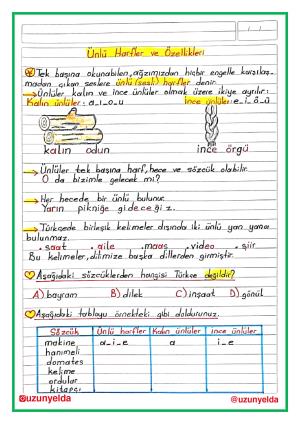 Ünlü Harfler ve Özellikleri
Tek başına okunabilen, ağzımızdan hiçbir engelle karşılaş-
madan çıkan seslere ünlü (sesli) harfler denir.
Ünlüler kalın ve ince ünlüler olmak üzere ikiye ayrılır:
Kalın ünlüler: a_ı_o_u ince ünlüler: e_i_ö_ü
kalın odun ince örgü
Ünlüler tek başına harf, hece ve sözcük olabilir.
O da bizimle gelecek mi?
Her hecede bir ünlü bulunur.
Yarın pikniğe gideceğiz.
Türkçede birleşik kelimeler dışında iki ünlü yan yana
bulunmaz.
.saat .aile .maaş .video .şiir
Bu kelimeler, dilimize başka dillerden girmiştir.
Aşağıdaki sözcüklerden hangisi Türkçe değildir?
A) bayram B) dilek C) inşaat D) gönül
Aşağıdaki tabloyu örnekteki gibi doldurunuz.
Sözcük Ünlü harfler Kalın ünlüler ince ünlüler
makine a_i_e a i_e
hanımeli
domates
kelime
ordular
kitapçı
@uzunyelda @uzunyelda